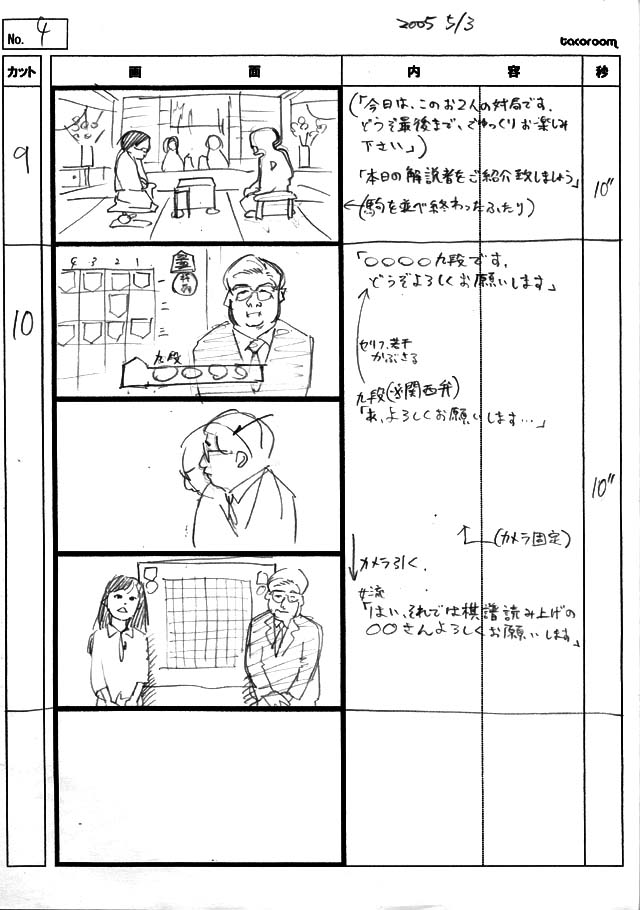 No. 4
2005 5/3
tacoroom
カット
画面
内容
秒
9
(「今日は、このお2人の対局です。
どうぞ最後まで、ごゆっくりお楽しみ
下さい」)
「本日の解説者をご紹介致しましょう」
(駒を並べ終わったふたり)
10"
10
4 3 2 1
一
二
三
九段
〇〇〇〇
「〇〇〇〇九段です。
どうぞよろしくお願いします」
セリフ、若干
かぶさる
九段(※関西弁)
「あ、よろしくお願いします…」
10"
(カメラ固定)
カメラ引く.
女流
「はい、それでは棋譜読み上げの
〇〇さんよろしくお願いします」